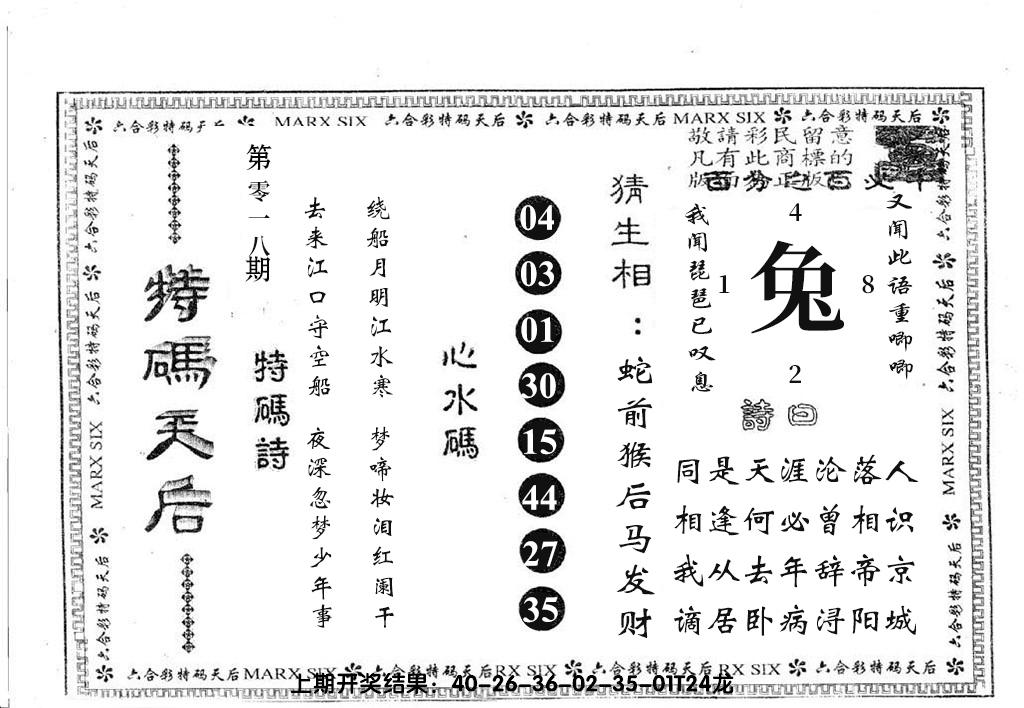 六合彩特码天后 MARX SIX 六合彩特码天后 六合彩特码天后 MARX SIX 六合彩特码天后
敬請彩民留意
凡有此商標的
特碼天后
第零一八期
特碼詩
去来江口守空船
绕船月明江水寒
夜深忽梦少年事
梦啼妆泪红阑干
心水碼
04
03
01
30
15
44
27
35
猜生相:蛇前猴后马发财
我闻琵琶已叹息
又闻此语重唧唧
4
1 兔 8
2
詩曰
同是天涯沦落人
相逢何必曾相识
我从去年辞帝京
谪居卧病浔阳城
六合彩特码天后 六合彩特码天后 MARX SIX 六合彩特码天后
六合彩特码天后 六合彩特码天后 MARX SIX 六合彩特码天后
六合彩特码天后 MARX SIX 六合彩特码天后 RX SIX 六合彩特码天后 RX SIX 六合彩特码天后
上期开奖结果：40-26-36-02-35-01T24龙